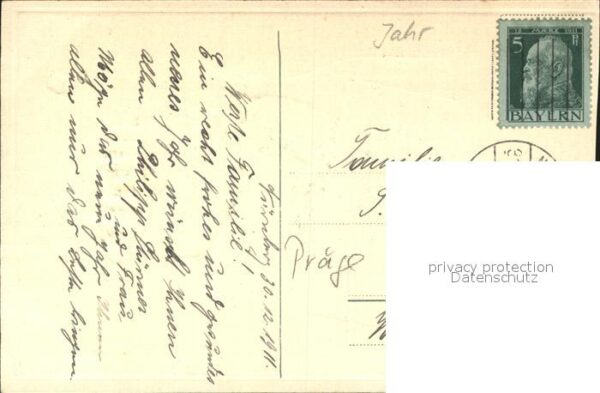 Nürnberg 30.12.1911.
Werte Familie!
Ein recht frohes und gesundes
neues Jahr wünscht Ihnen
allen Philipp
und Frau
Möge das neue Jahr Ihnen
allen nur das Beste bringen.
Jahr
5 Pf
BAYERN
Familie
Präge
privacy protection
Datenschutz